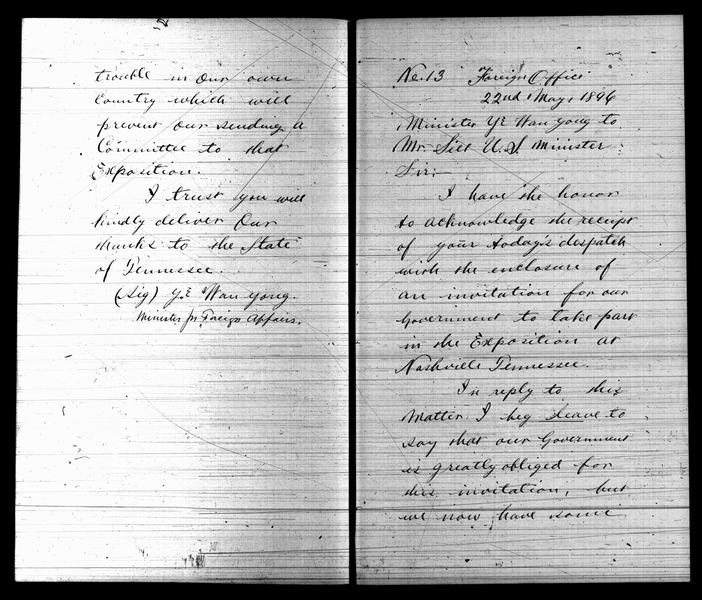 trouble in our own
Country which will
prevent our sending a
Committee to that
Exposition.
I trust you will
kindly deliver Our
thanks to the State
of Tennessee.
(Sig) Ye Wan Yong.
Minister for Foreign Affairs.
No. 13 Foreign Office
22nd May, 1896
Minister Ye Wan Yong to
Mr Sill U.S. Minister
Sir:—
I have the honor
to acknowledge the receipt
of your today's despatch
with the enclosure of
an invitation for our
Government to take part
in the Exposition at
Nashville Tennessee.
In reply to this
Matter I beg leave to
say that our Government
is greatly obliged for
this invitation, but
we now have some